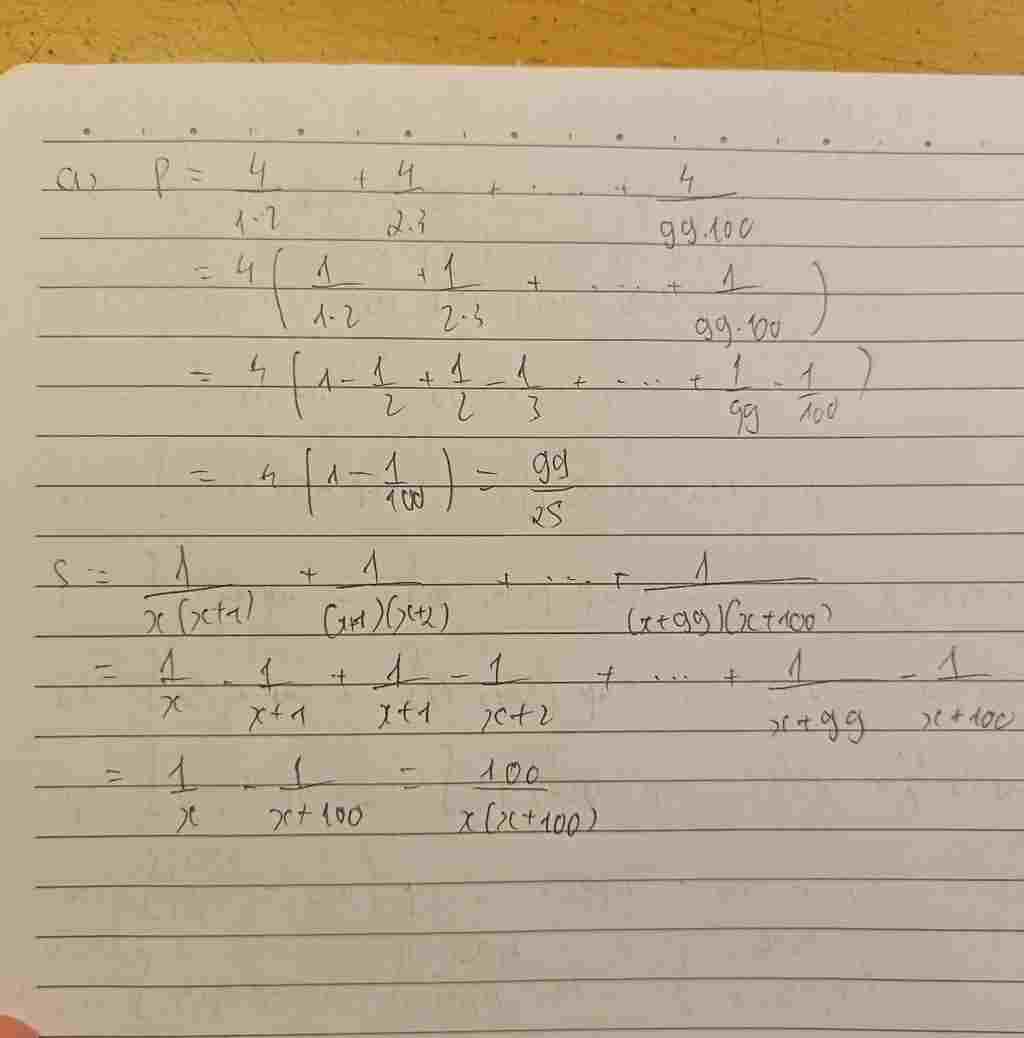 a) P = 4/1·2 + 4/2·3 + ..... + 4/99·100
= 4(1/1·2 + 1/2·3 + ..... + 1/99·100)
= 4(1 - 1/2 + 1/2 - 1/3 + ..... + 1/99 - 1/100)
= 4(1 - 1/100) = 99/25
S = 1/x(x+1) + 1/(x+1)(x+2) + ..... + 1/(x+99)(x+100)
= 1/x - 1/x+1 + 1/x+1 - 1/x+2 + ... + 1/x+99 - 1/x+100
= 1/x - 1/x+100 = 100/x(x+100)